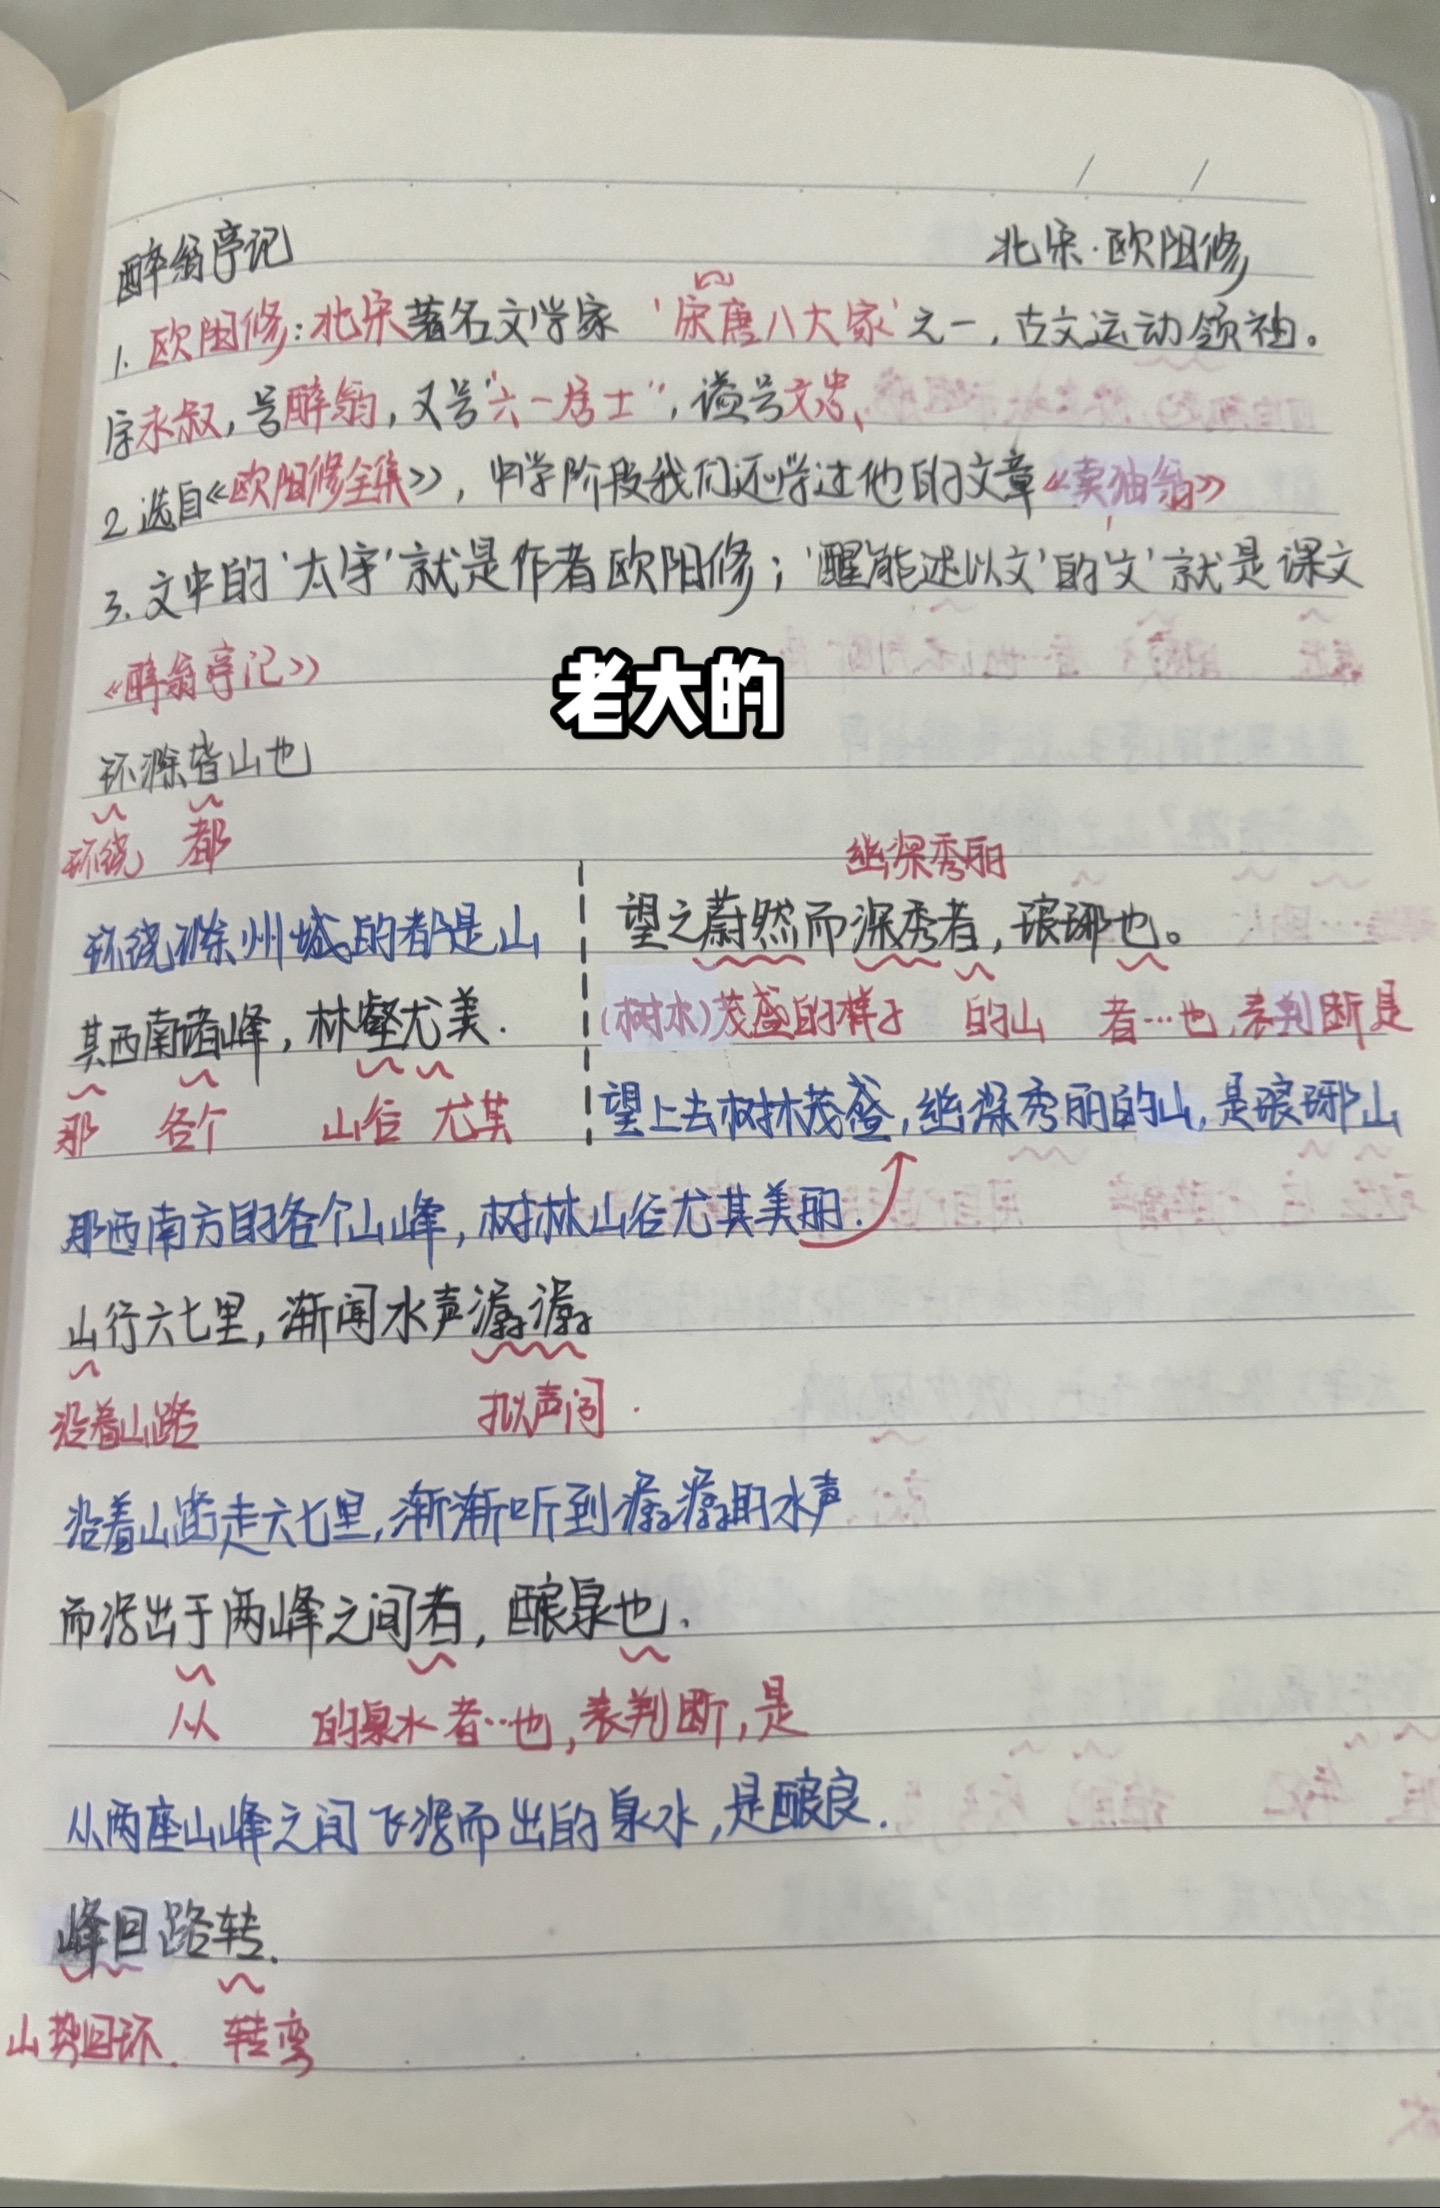 醉翁亭记 北宋·欧阳修
1. 欧阳修：北宋著名文学家 '宋唐八大家'之一，古文运动领袖。
字永叔，号醉翁，又号"六一居士"，谥号文忠、
2 选自《欧阳修全集》，中学阶段我们还学过他的文章《卖油翁》
3. 文中的'太守'就是作者欧阳修；'醒能述以文'的'文'就是课文
《醉翁亭记》
老大的
环滁皆山也
环绕 都
环绕滁州城的都是山
其西南诸峰，林壑尤美.
那 各个 山谷 尤其
幽深秀丽
望之蔚然而深秀者，琅琊也。
(树木)茂盛的样子 的山 者…也，表判断是
望上去树林茂盛，幽深秀丽的山，是琅琊山
那西南方的各个山峰，树林山谷尤其美丽.
山行六七里，渐闻水声潺潺
沿着山路 拟声词.
沿着山路走六七里，渐渐听到潺潺的水声
而泻出于两峰之间者，酿泉也.
从 的泉水 者…也，表判断，是
从两座山峰之间飞泻而出的泉水，是酿良.
峰回路转.
山势回环. 转弯